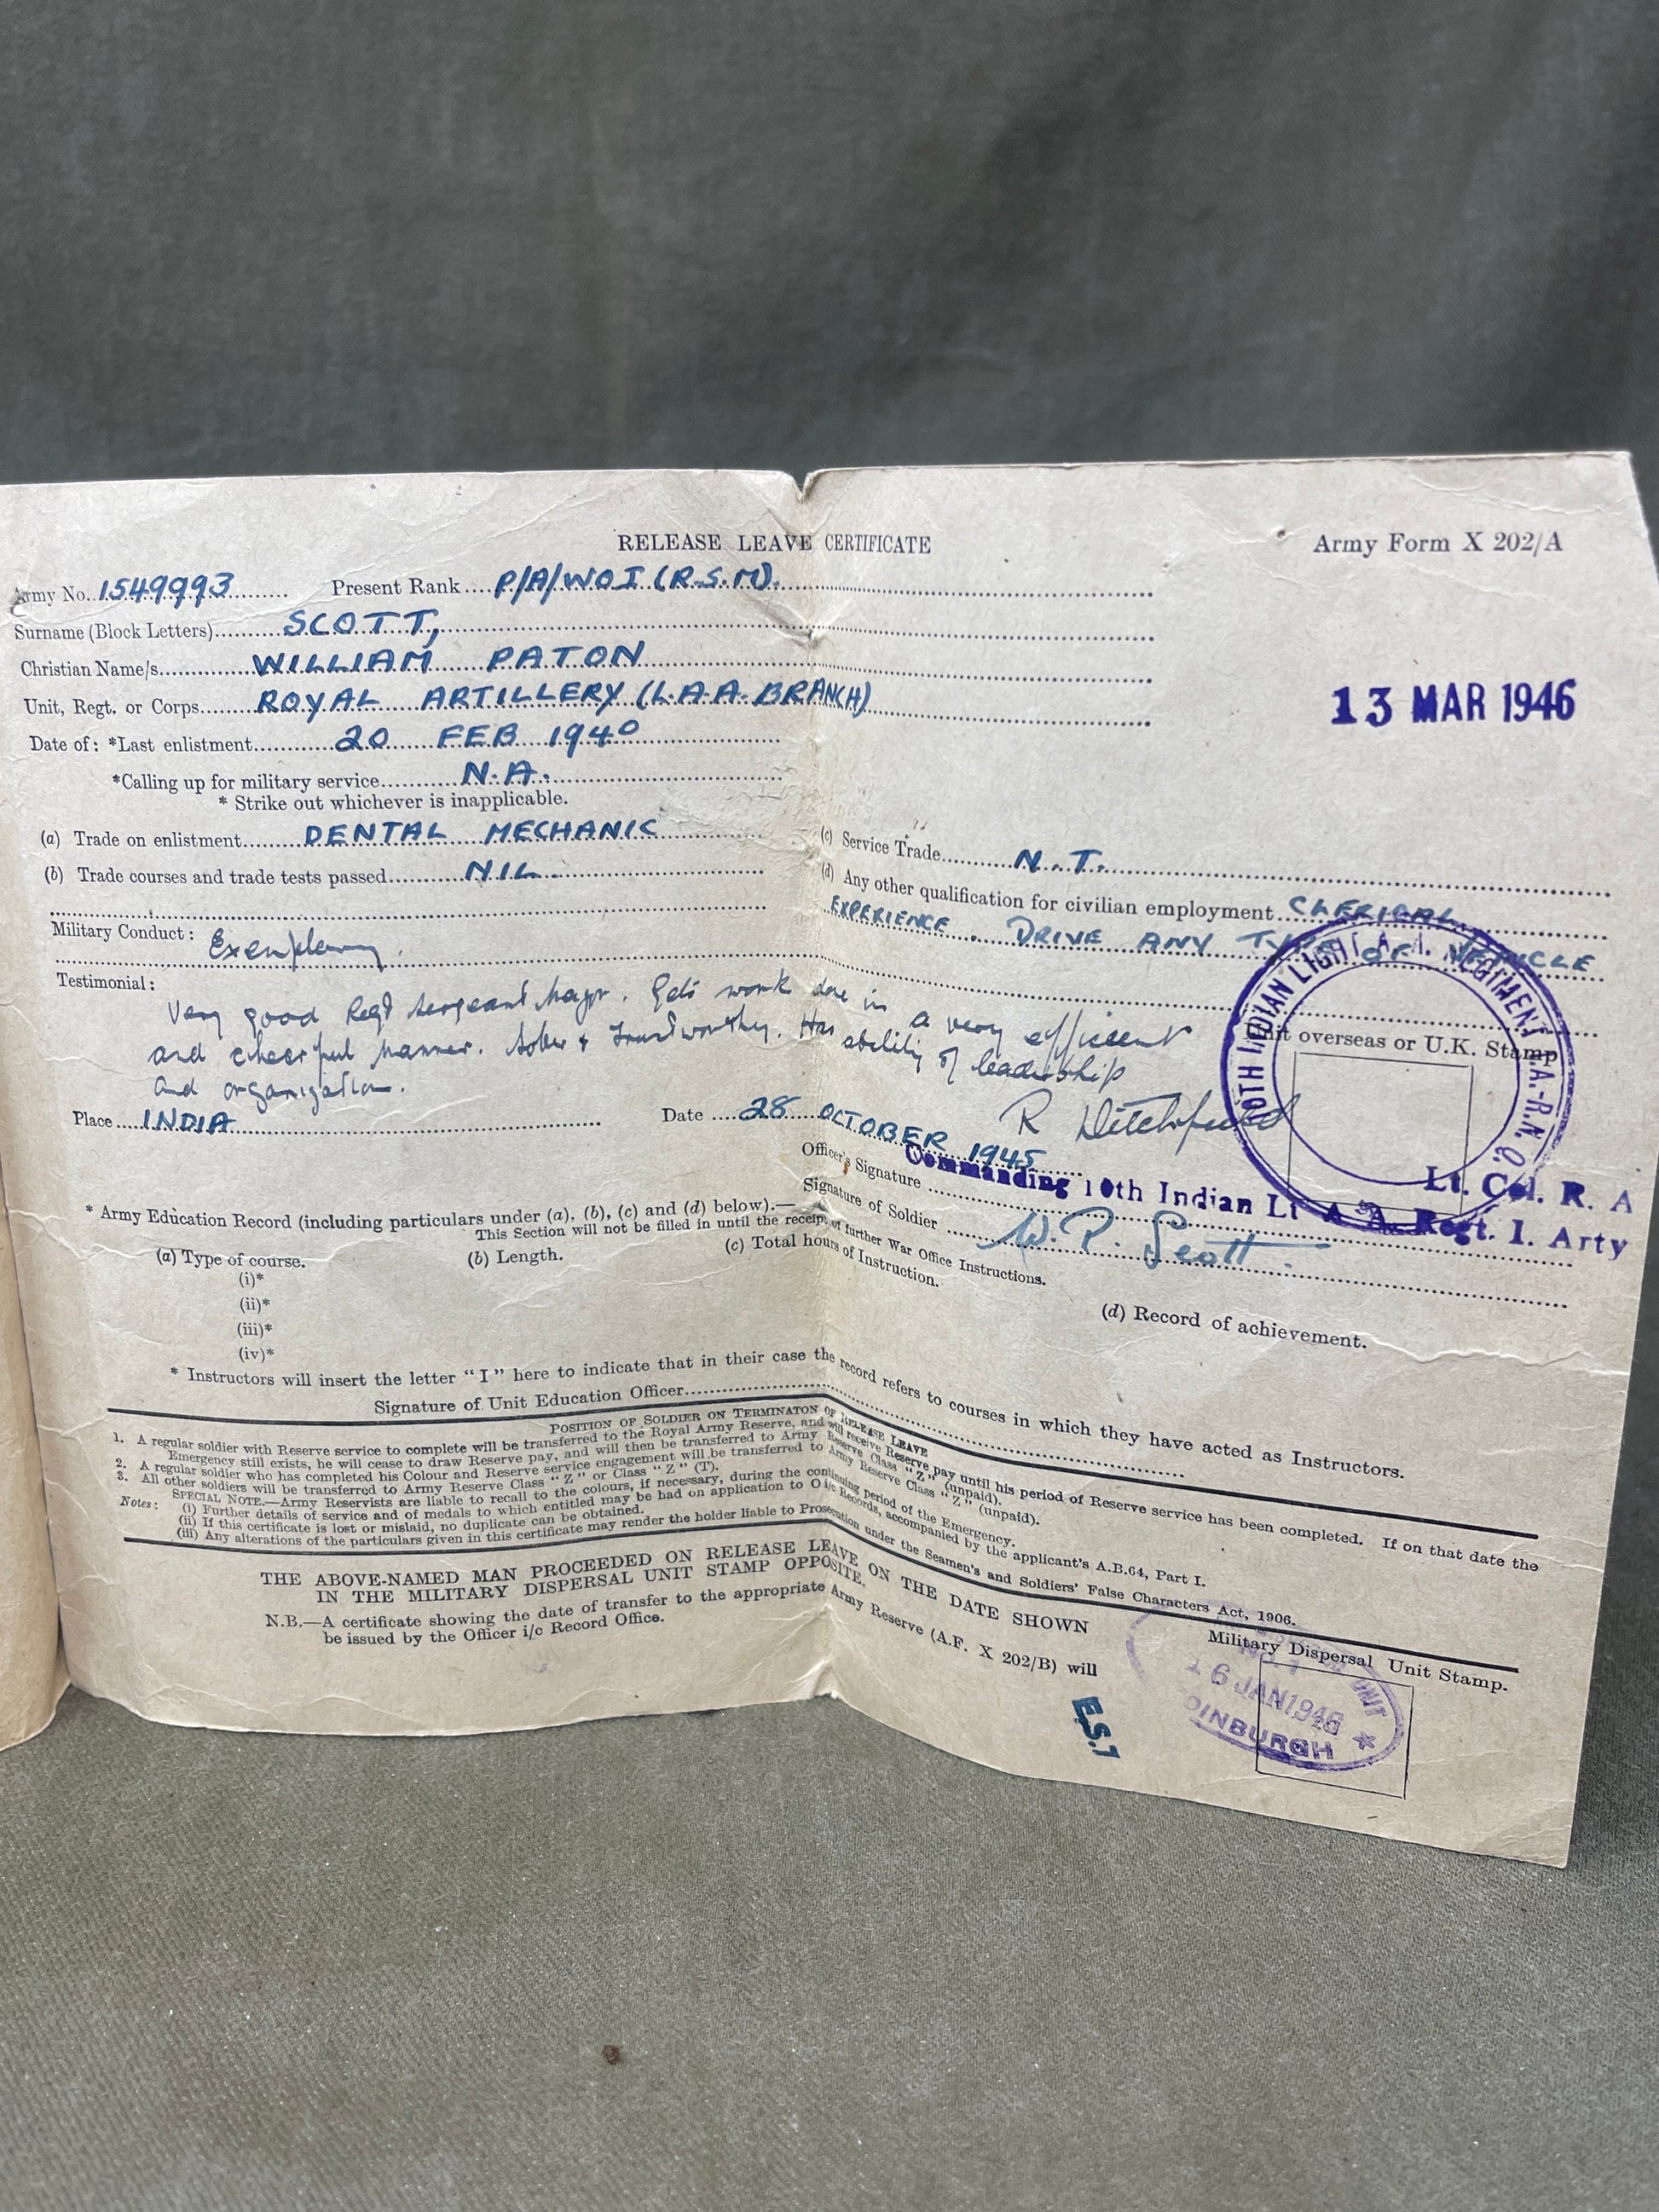 RELEASE LEAVE CERTIFICATE
Army Form X 202/A
Army No. 1549993 Present Rank P/A/WOI (R.S.M).
Surname (Block Letters) SCOTT,
Christian Name/s WILLIAM PATON
Unit, Regt. or Corps ROYAL ARTILLERY (L.A.A. BRANCH)
13 MAR 1946
Date of: *Last enlistment 20 FEB 1940
*Calling up for military service N.A.
* Strike out whichever is inapplicable.
(a) Trade on enlistment DENTAL MECHANIC
(c) Service Trade N.T.
(b) Trade courses and trade tests passed NIL.
(d) Any other qualification for civilian employment CLERICAL
EXPERIENCE. DRIVE ANY TYPE OF VEHICLE
Military Conduct: Exemplary.
Testimonial: Very good Regt Sergeant Major. Gets work done in a very efficient
and cheerful manner. Sober & trustworthy. Has ability of leadership
and organization.
Unit overseas or U.K. Stamp
10TH INDIAN LIGHT A.A. REGIMENT I.A.-R.N.Q.
Place INDIA Date 28 OCTOBER 1945
R Ditchfield
Lt. Col. R. A
Officer's Signature
Commanding 10th Indian Lt A.A. Regt. I. Arty
Signature of Soldier W. P. Scott.
* Army Education Record (including particulars under (a), (b), (c) and (d) below).—
This Section will not be filled in until the receipt of further War Office Instructions.
(a) Type of course. (b) Length. (c) Total hours of Instruction. (d) Record of achievement.
(i)*
(ii)*
(iii)*
(iv)*
* Instructors will insert the letter "I" here to indicate that in their case the record refers to courses in which they have acted as Instructors.
Signature of Unit Education Officer
POSITION OF SOLDIER ON TERMINATON OF RELEASE LEAVE
1. A regular soldier with Reserve service to complete will be transferred to the Royal Army Reserve, and will receive Reserve pay until his period of Reserve service has been completed. If on that date the
Emergency still exists, he will cease to draw Reserve pay, and will then be transferred to Army Reserve Class "Z" (unpaid).
2. A regular soldier who has completed his Colour and Reserve service engagement will be transferred to Army Reserve Class "Z" (unpaid).
3. All other soldiers will be transferred to Army Reserve Class "Z" or Class "Z" (T).
SPECIAL NOTE.—Army Reservists are liable to recall to the colours, if necessary, during the continuing period of the Emergency.
Notes: (i) Further details of service and of medals to which entitled may be had on application to O i/c Records, accompanied by the applicant's A.B.64, Part I.
(ii) If this certificate is lost or mislaid, no duplicate can be obtained.
(iii) Any alterations of the particulars given in this certificate may render the holder liable to Prosecution under the Seamen's and Soldiers' False Characters Act, 1906.
THE ABOVE-NAMED MAN PROCEEDED ON RELEASE LEAVE ON THE DATE SHOWN
IN THE MILITARY DISPERSAL UNIT STAMP OPPOSITE.
N.B.—A certificate showing the date of transfer to the appropriate Army Reserve (A.F. X 202/B) will
be issued by the Officer i/c Record Office.
Military Dispersal Unit Stamp.
UNIT
No. 1
16 JAN 1946
EDINBURGH
E.S.1